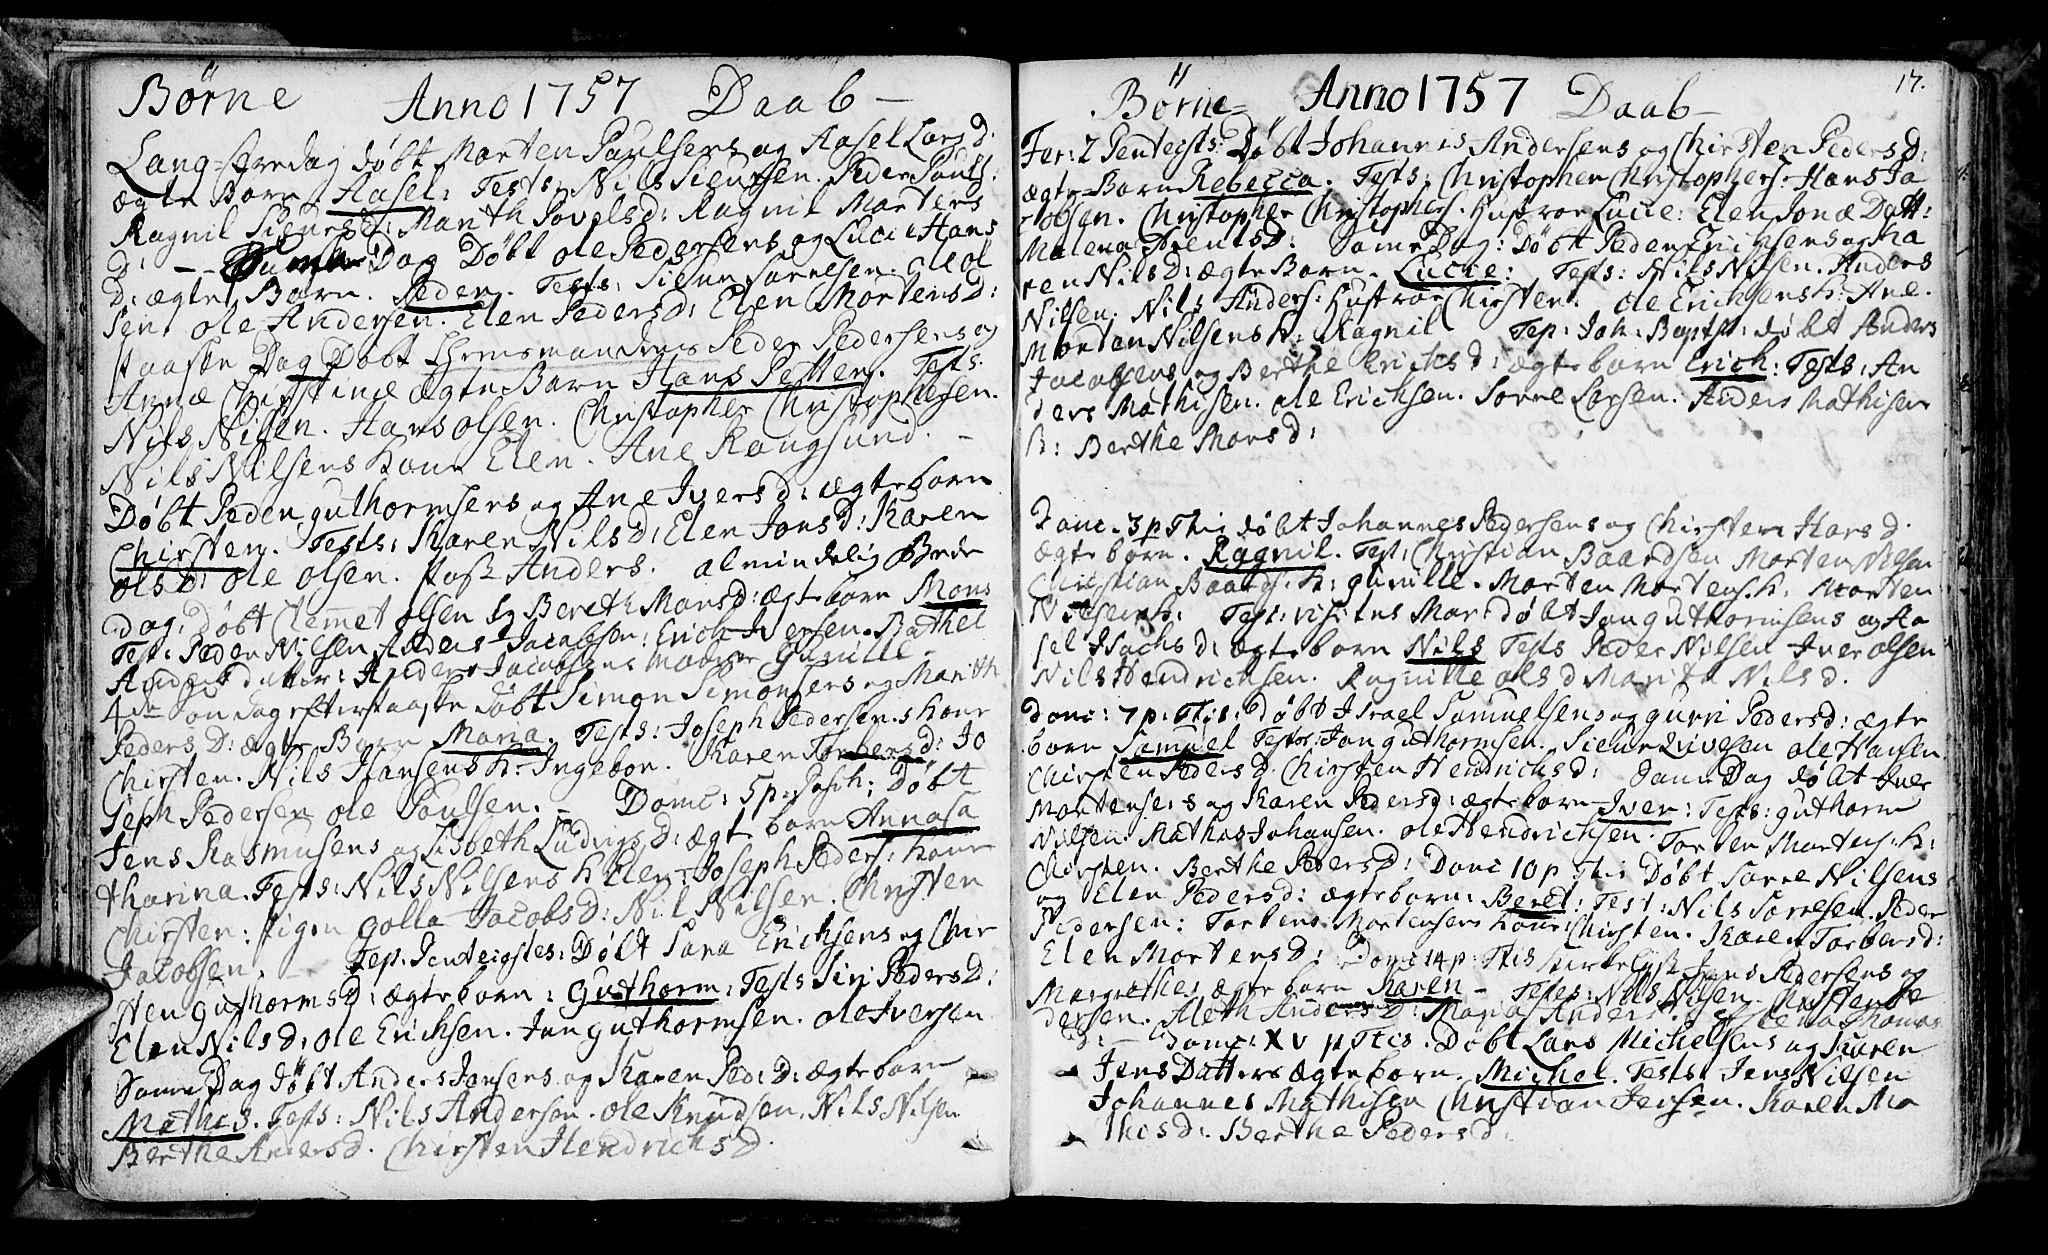 Børne Anno 1757 Daab –
Lang-fredag døbt Morten Paulsens og Aasel Lars D:
ægte Barn Aasel: Tests: Nils Siensen. Peder Pouls:
Ragnil Siensd: Marith Povelsd: Ragnil Mortens
D: – – Samme Dag Døbt Ole Pedersens og Lucie Hans
D: ægte Barn. Peden. Tests: Sieur Sørresen. Ole Ol
sen. Ole Andersen. Elen Pedersd: Elen Mortens D:
Paaske Dag Døbt Peder Pedersens og
Annæ Chirstinæ ægte Barn Hans Petter. Tests:
Nils Nilsen. Hans Olsen. Christopher Christophersen.
Nils Nilsens Kone Elen. Ane Rangsund. –
Døbt Peden Guthormsens og Ane Ivers d: ægte born
Chirsten. Tests: Karen Nils D: Elen Jons D: Karen
Ols D: Ole Olsen. Anders. almindelig Bede
dag: Døbt Clemmet Olsen og Bereth Mons D: ægte born Mons
Test: Peden Nilsen Anders Jacobsen: Erich Iversen. Bathel
Anders datter: Anders Jacobsens Gunille –
4de Søndag efter Paaske døbt Simon Simonsens og Marith
Peders D: ægte Barn Maria. Tests: Joseph Pedersens Kone
Chirsten. Nils Hansens K: Ingebor. Karen Torbersd: Jo
seph Pedersen Ole Poulsen. – Domc: 5 p: Pasch: Døbt
Jens Rasmusens og Lisbeth Ludvigs D: ægte born Annasa
tharina. Tests: Nils Nilsens K Elen. Joseph Peders: Kone
Chirsten: Pigen Golla Jacobs D: Nil Nilsen. Christen
Jacobsen. – Fep: Pentecostes: Døbt Sara Erichsens og Chir
sten Guthorms D: ægte born: Guthorm: Tests Siri Peders D:
Elen Nils D: Ole Erichsen. Jan Guthormsen. Ole Iversen
Samme Dag døbt Anders Jensens og Karen Ped: D: ægte born
Mathis. Tests: Nils Andersen. Ole Knudsen. Nils Nilsen
Berthe Anders D. Chirsten Hendrichs D.
17.
Børne Anno 1757 Daab –
Fer: 2 Pentecsts: Døbt Johannis Andersens og Chirsten Peders D:
ægte Barn Rebecca. Tests: Christopher Christophers: Hans Ja
cobsen. Christopher Christophers. Hustroe Lucie: Elen Jonæ Datt:
Malena D: Same Dag: Døbt Peder Erichsens og Ka
ren Nils D: ægte Barn. Lucie: Tests: Nils Nilsen. Anders
Nilsen. Nils Anders: Hustroe Chirsten. Ole Erichsens K: Ane.
Morten Nilsens K: Ragnil Fep: Joh: Baptst: døbt Anders
Jacobsens og Berthe Erichs d: ægte born Erich: Tests: An
ders Mathisen. Ole Erichsen. Sørre Larsen. Anders Mathisen
K: Berthe Mons d:
Domc. 3 p Tris døbt Johannes Pedersens og Chirsten Hans d.
ægte born. Ragnil. Test: Christian Baardsen Morten Nilsen
Christian Baards: K: Gunille. Morten Mortens. K: Morten
Nilsens K: Fest: visit[ns] Mar: døbt Jan Guthormsens og Aa
sel Isachs d: ægte born Nils Tests Peder Nilsen Iver Olsen
Nils Hendrichsen. Ragnille Ols d Marita Nils d.
Domc: 7 p: Ttis: Døbt Israel Samuelsens og Guri Pedersd: ægte
born Samuel Testes: Jan Guthormsen. Sieur Ole Hansen
Chirsten Peders D Chirsten Hendrichs d: Same Dag døbt Iver
Mortensens og Karen Pedersd: ægte born Iver: Tests: Guthorm
Nilsen. Mathis Johansen. Ole Hendrichsen. Torben Mortens: K:
Chirsten. Berthe Peders D: Domc 10 p Ttis Døbt Sørre Nilsens
og Elen Peders d: ægte born: Beret: Test: Nils Sørresen. Peder
Pedersen: Torbens Mortensens Kone: Chirsten. Karen Torbersd:
Elen Mortens D: Domc 14 p: Ttis Jens Pedersens og
Margrethes ægte born Karen – Tests: Nils Nilsen.
dersen. Aleth Anders D: Maria Anders Lena Thomas
D: – Domc: XV p Ttis: Døbt Lars Michelsens og Karen
Jens Datters ægte born. Michel. Tests: Jens Nilsen
Johannes Mathisen Christian Jensen. Karen Ma
this d: Berthe Peders d: